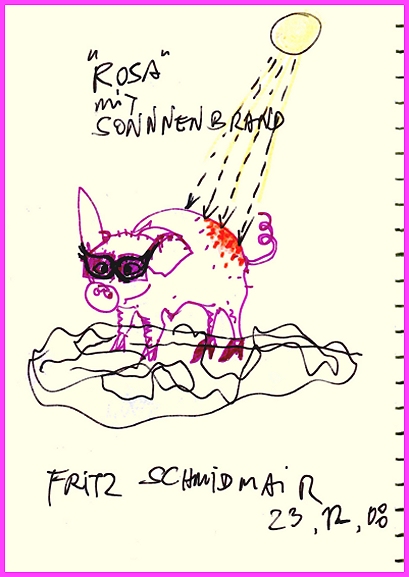 "ROSA"
miT
SONNNENBRAND
FRiTZ SCHMiDMAiR
23,12,08